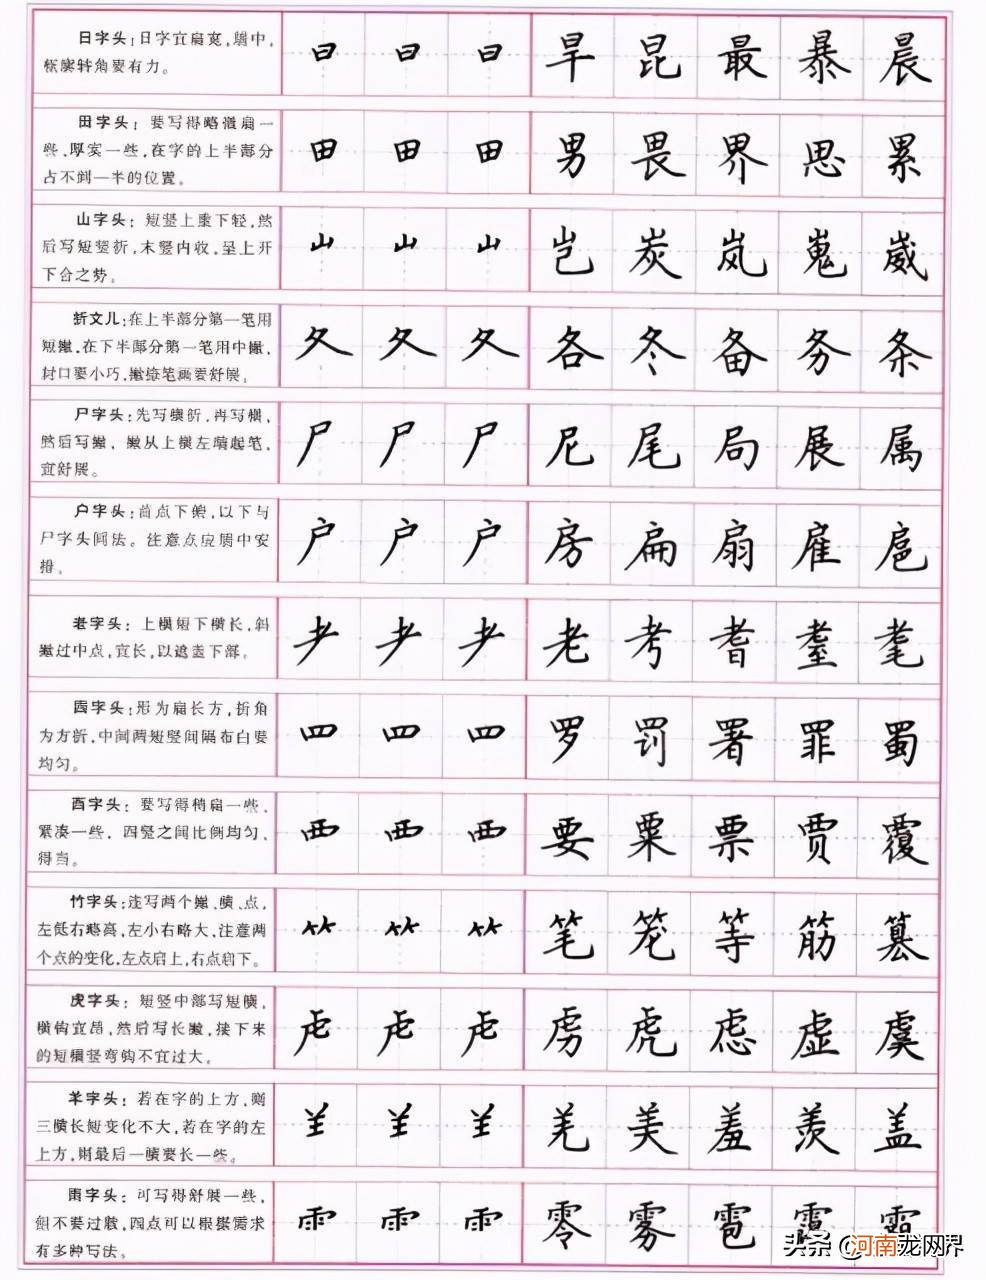 日字头：日字宜扁宽，居中， 日 日 日 旱 昆 最 暴 晨
横宽转角要有力。
田字头：要写得略微扁一 田 田 田 男 畏 界 思 累
些，厚实一些，在字的上半部分
占不到一半的位置。
山字头：短竖上重下轻，然 山 山 山 岂 炭 岚 嵬 崴
后写短竖折，末竖内收，呈上开
下合之势。
折文儿：在上半部分第一笔用 夂 夂 夂 各 冬 备 务 条
短撇，在下半部分第一笔用中撇，
封口要小巧，撇捺笔画要舒展。
尸字头：先写横折，再写横， 尸 尸 尸 尼 尾 局 展 属
然后写撇，撇从上横左端起笔，
宜舒展。
户字头：首点下俯，以下与 户 户 户 房 扁 扇 雇 扈
尸字头同法。注意点应居中安
排。
老字头：上横短下横长，斜 耂 耂 耂 老 考 耆 耋 耄
撇过中点，宜长，以遮盖下部。
四字头：形为扁长方，折角 罒 罒 罒 罗 罚 署 罪 蜀
为方折，中间两短竖间隔布白要
均匀。
西字头：要写得稍扁一些、 覀 覀 覀 要 粟 票 贾 覆
紧凑一些，四竖之间比例均匀，
得当。
竹字头：连写两个撇、横、点， ⺮ ⺮ ⺮ 笔 笼 等 筋 篡
左低右略高，左小右略大，注意两
个点的变化，左点启上，右点启下。
虎字头：短竖中部写短横， 虍 虍 虍 虏 虎 虑 虚 虞
横钩宜昂，然后写长撇，接下来
的短横竖弯钩不宜过大。
羊字头：若在字的上方，则 𦍌 𦍌 𦍌 羌 美 羞 羡 盖
三横长短变化不大，若在字的左
上方，则最后一横要长一些。
雨字头：可写得舒展一些， ⻗ ⻗ ⻗ 零 雾 雹 露 霜
但不要过散，四点可以根据需求
有多种写法。
头条 @河南龙网界